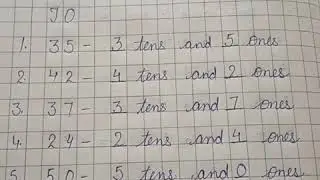 TO
1. 35 - 3 tens and 5 ones
2. 42 - 4 tens and 2 ones
3. 37 - 3 tens and 7 ones
4. 24 - 2 tens and 4 ones
5. 50 - 5 tens and 0 ones